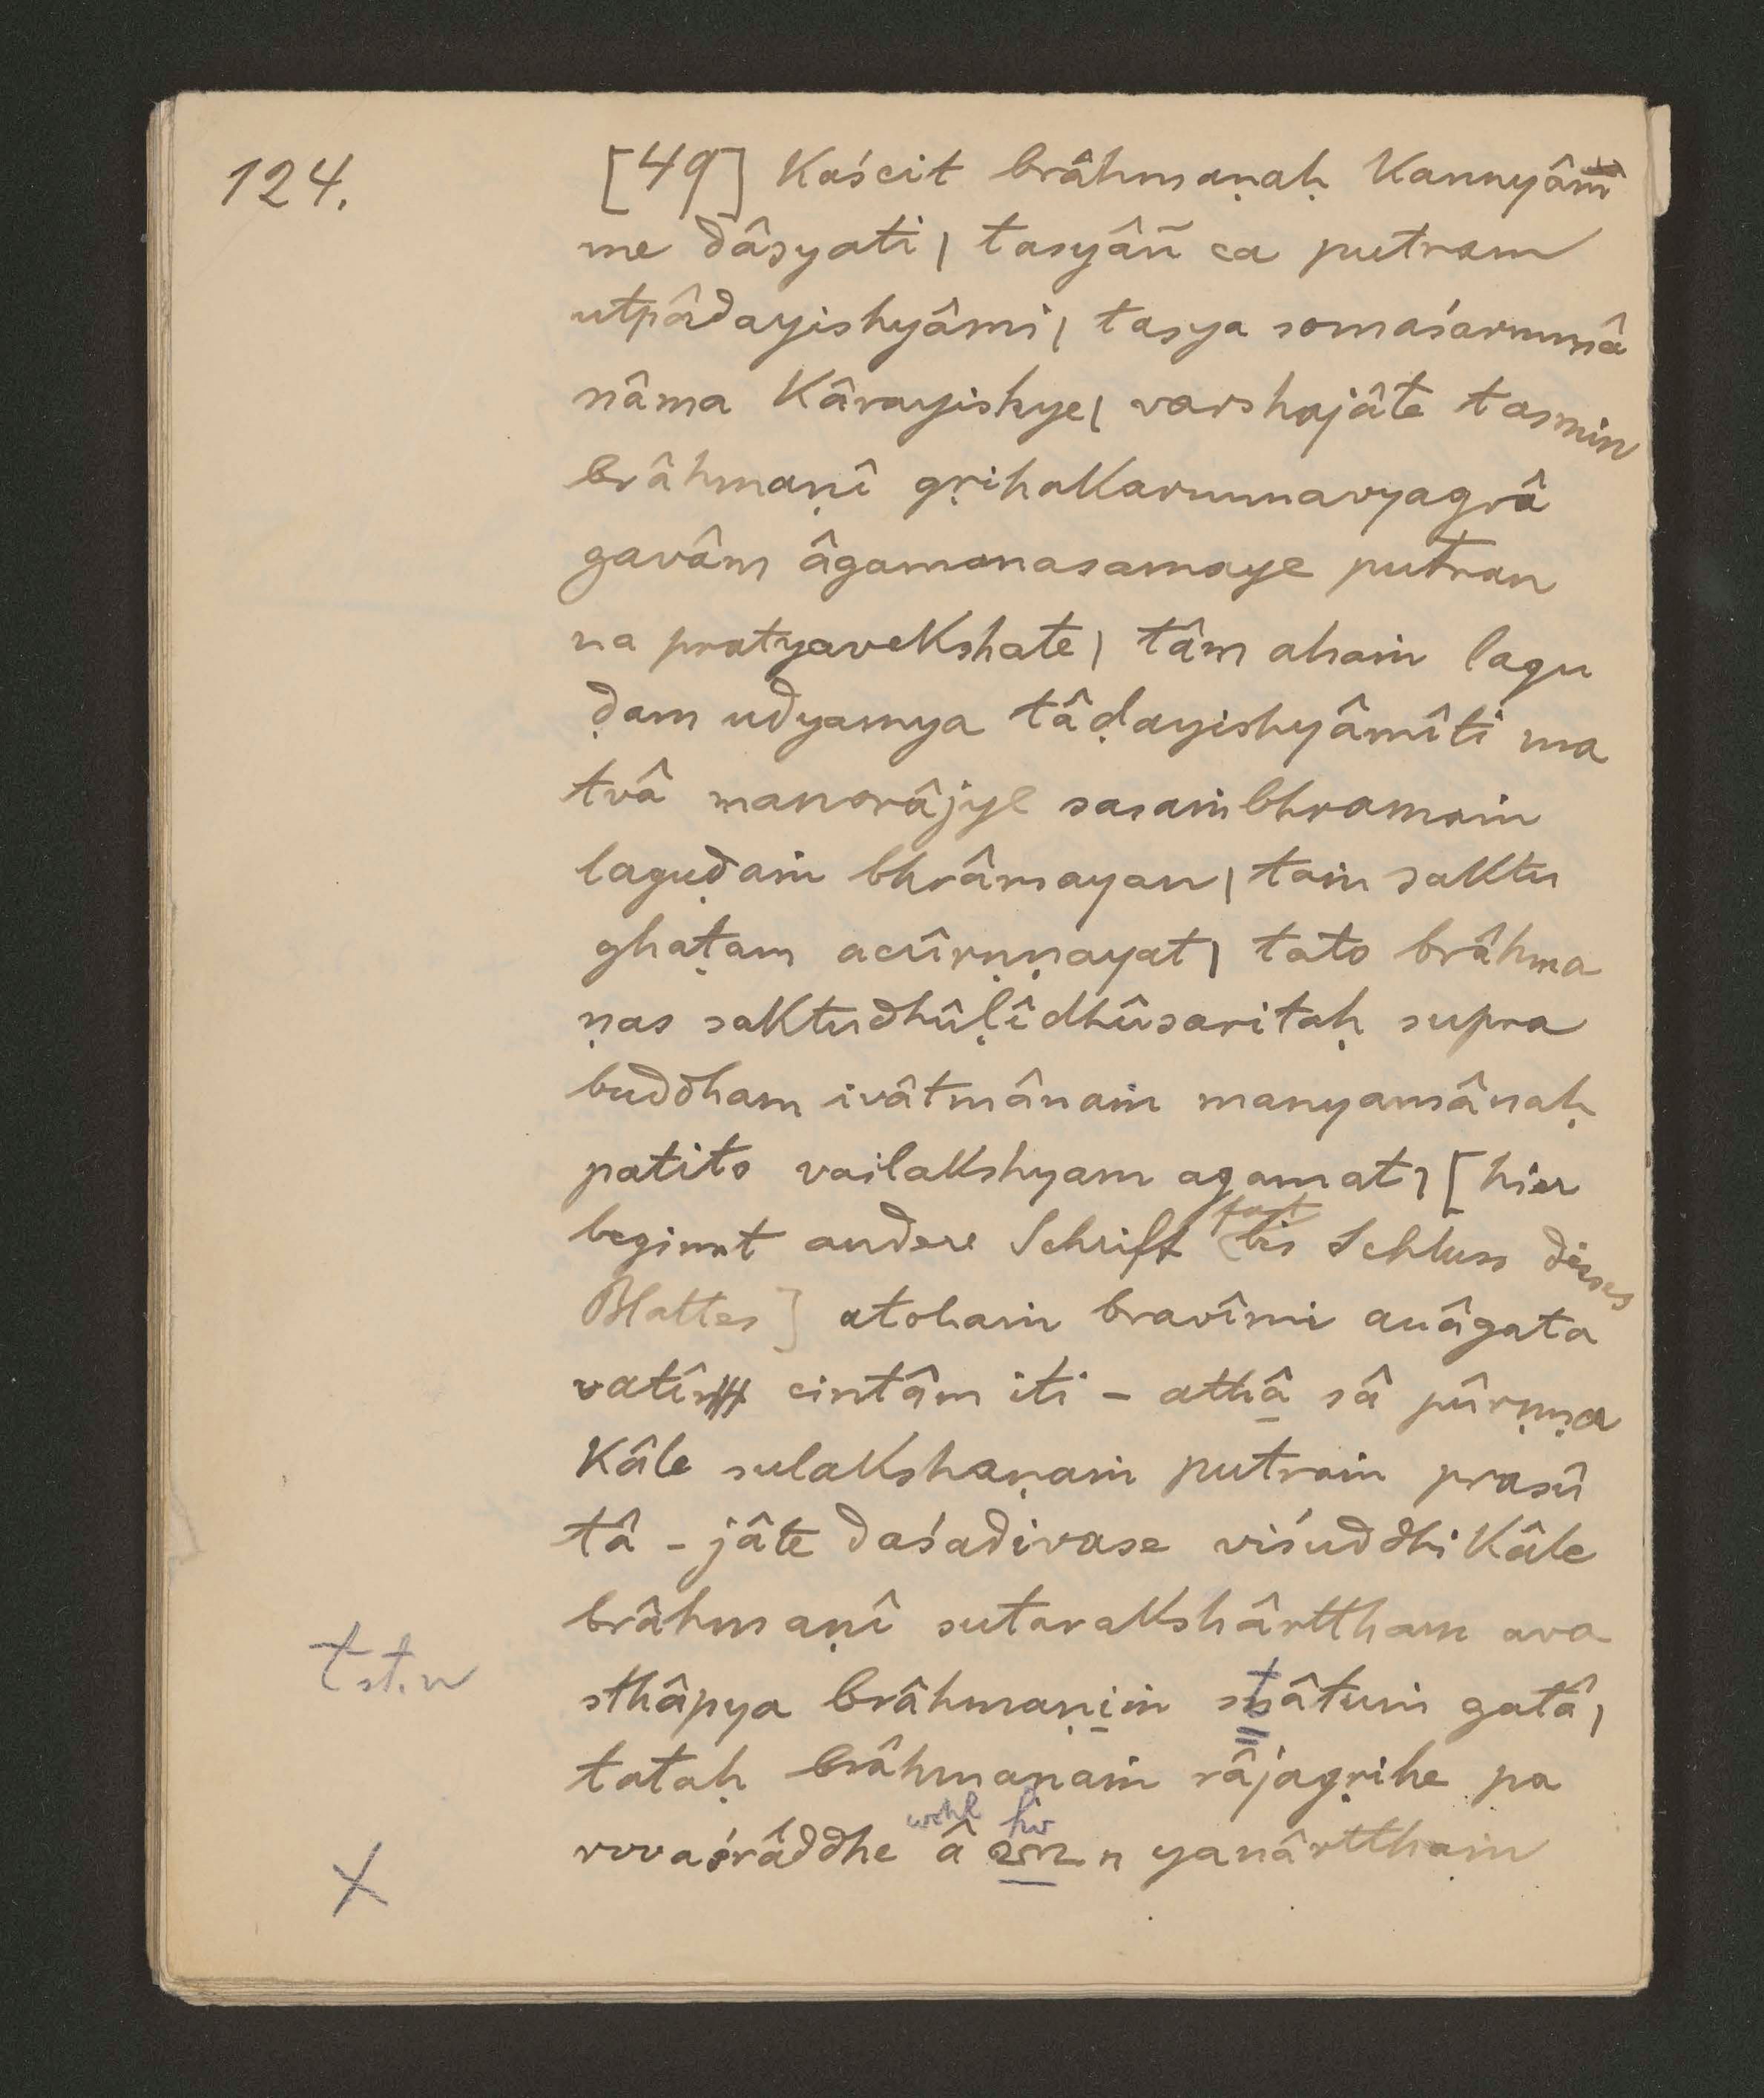 124.
[49] Kaścit brâhmaṇaḥ Kannyâm̃
me dâsyati | tasyâñ ca putram
utpâdayishyâmi | tasya somaśarmmâ
nâma Kârayishye | varshajâte tasmin
brâhmaṇî gṛihaKarmmavyagrâ
gavâm âgamanasamaye putran
na pratyaveKshate | tâm ahaṁ lagu
ḍam udyamya tâḍayishyâmîti ma
tvâ manorâjye sasaṁbhramaṁ
laguḍaṁ bhrâmayan | taṁ saKtu
ghaṭam acûrṇṇayat | tato brâhma
ṇas saKtudhûḷîdhûsaritaḥ supra
buddham ivâtmânaṁ manyamânaḥ
patito vailaKshyam agamat | [hier
beginnt andere Schrift fast bis Schluss dieses
Blattes] atohaṁ bravîmi anâgata
vatîm cintâm iti - athâ sâ pûrṇṇa
Kâle sulaKshaṇaṁ putraṁ prasû
tâ - jâte daśadivase viśuddhiKâle
brâhmaṇî sutaraKshârttham ava
t st. n
sthâpya brâhmaṇiṁ stâtuṁ gatâ |
tataḥ brâhmaṇaṁ râjagṛihe pa
wohl hv
X
rvvaśrâddhe â n yanârtthaṁ